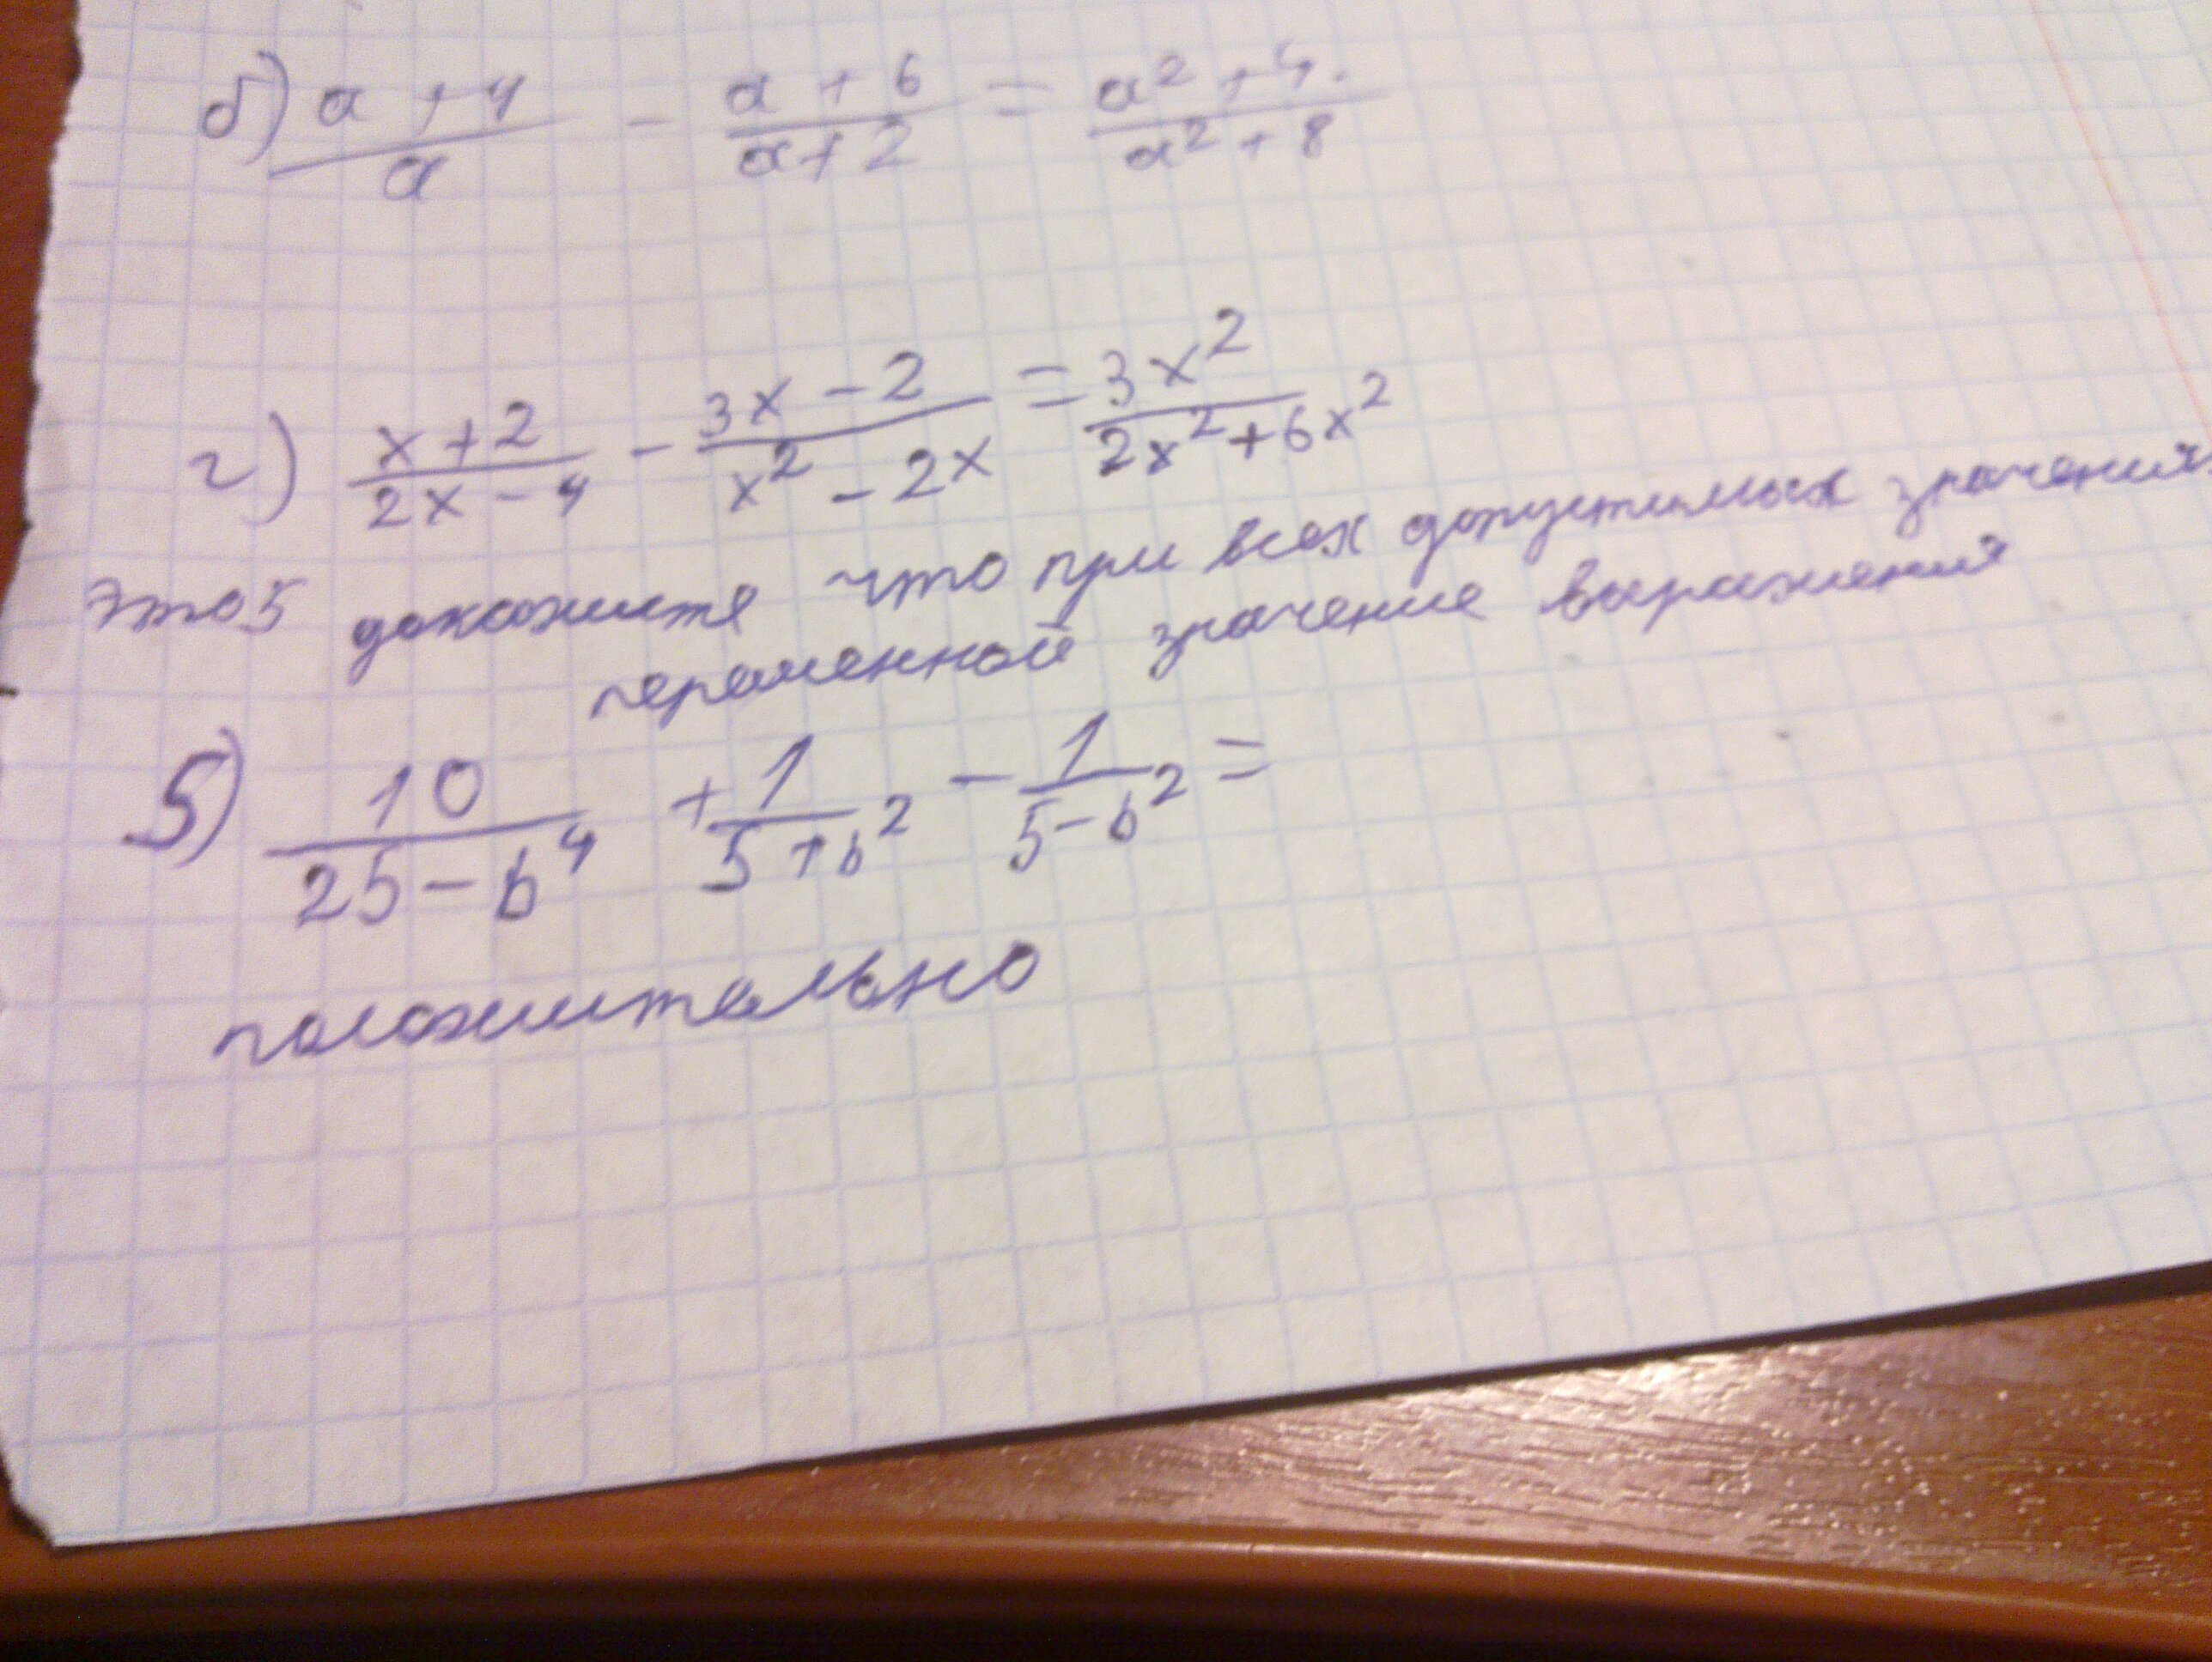 б) (a + 4)/a - (a + 6)/(a + 2) = (a² + 4.)/(a² + 8)
г) (x + 2)/(2x - 4) - (3x - 2)/(x² - 2x) = 3x²/(2x² + 6x²)
это 5 докажите что при всех допустимых значения
переменной значение выражения
5) 10/(25 - b⁴) + 1/(5 + b²) - 1/(5 - b²) =
положительно